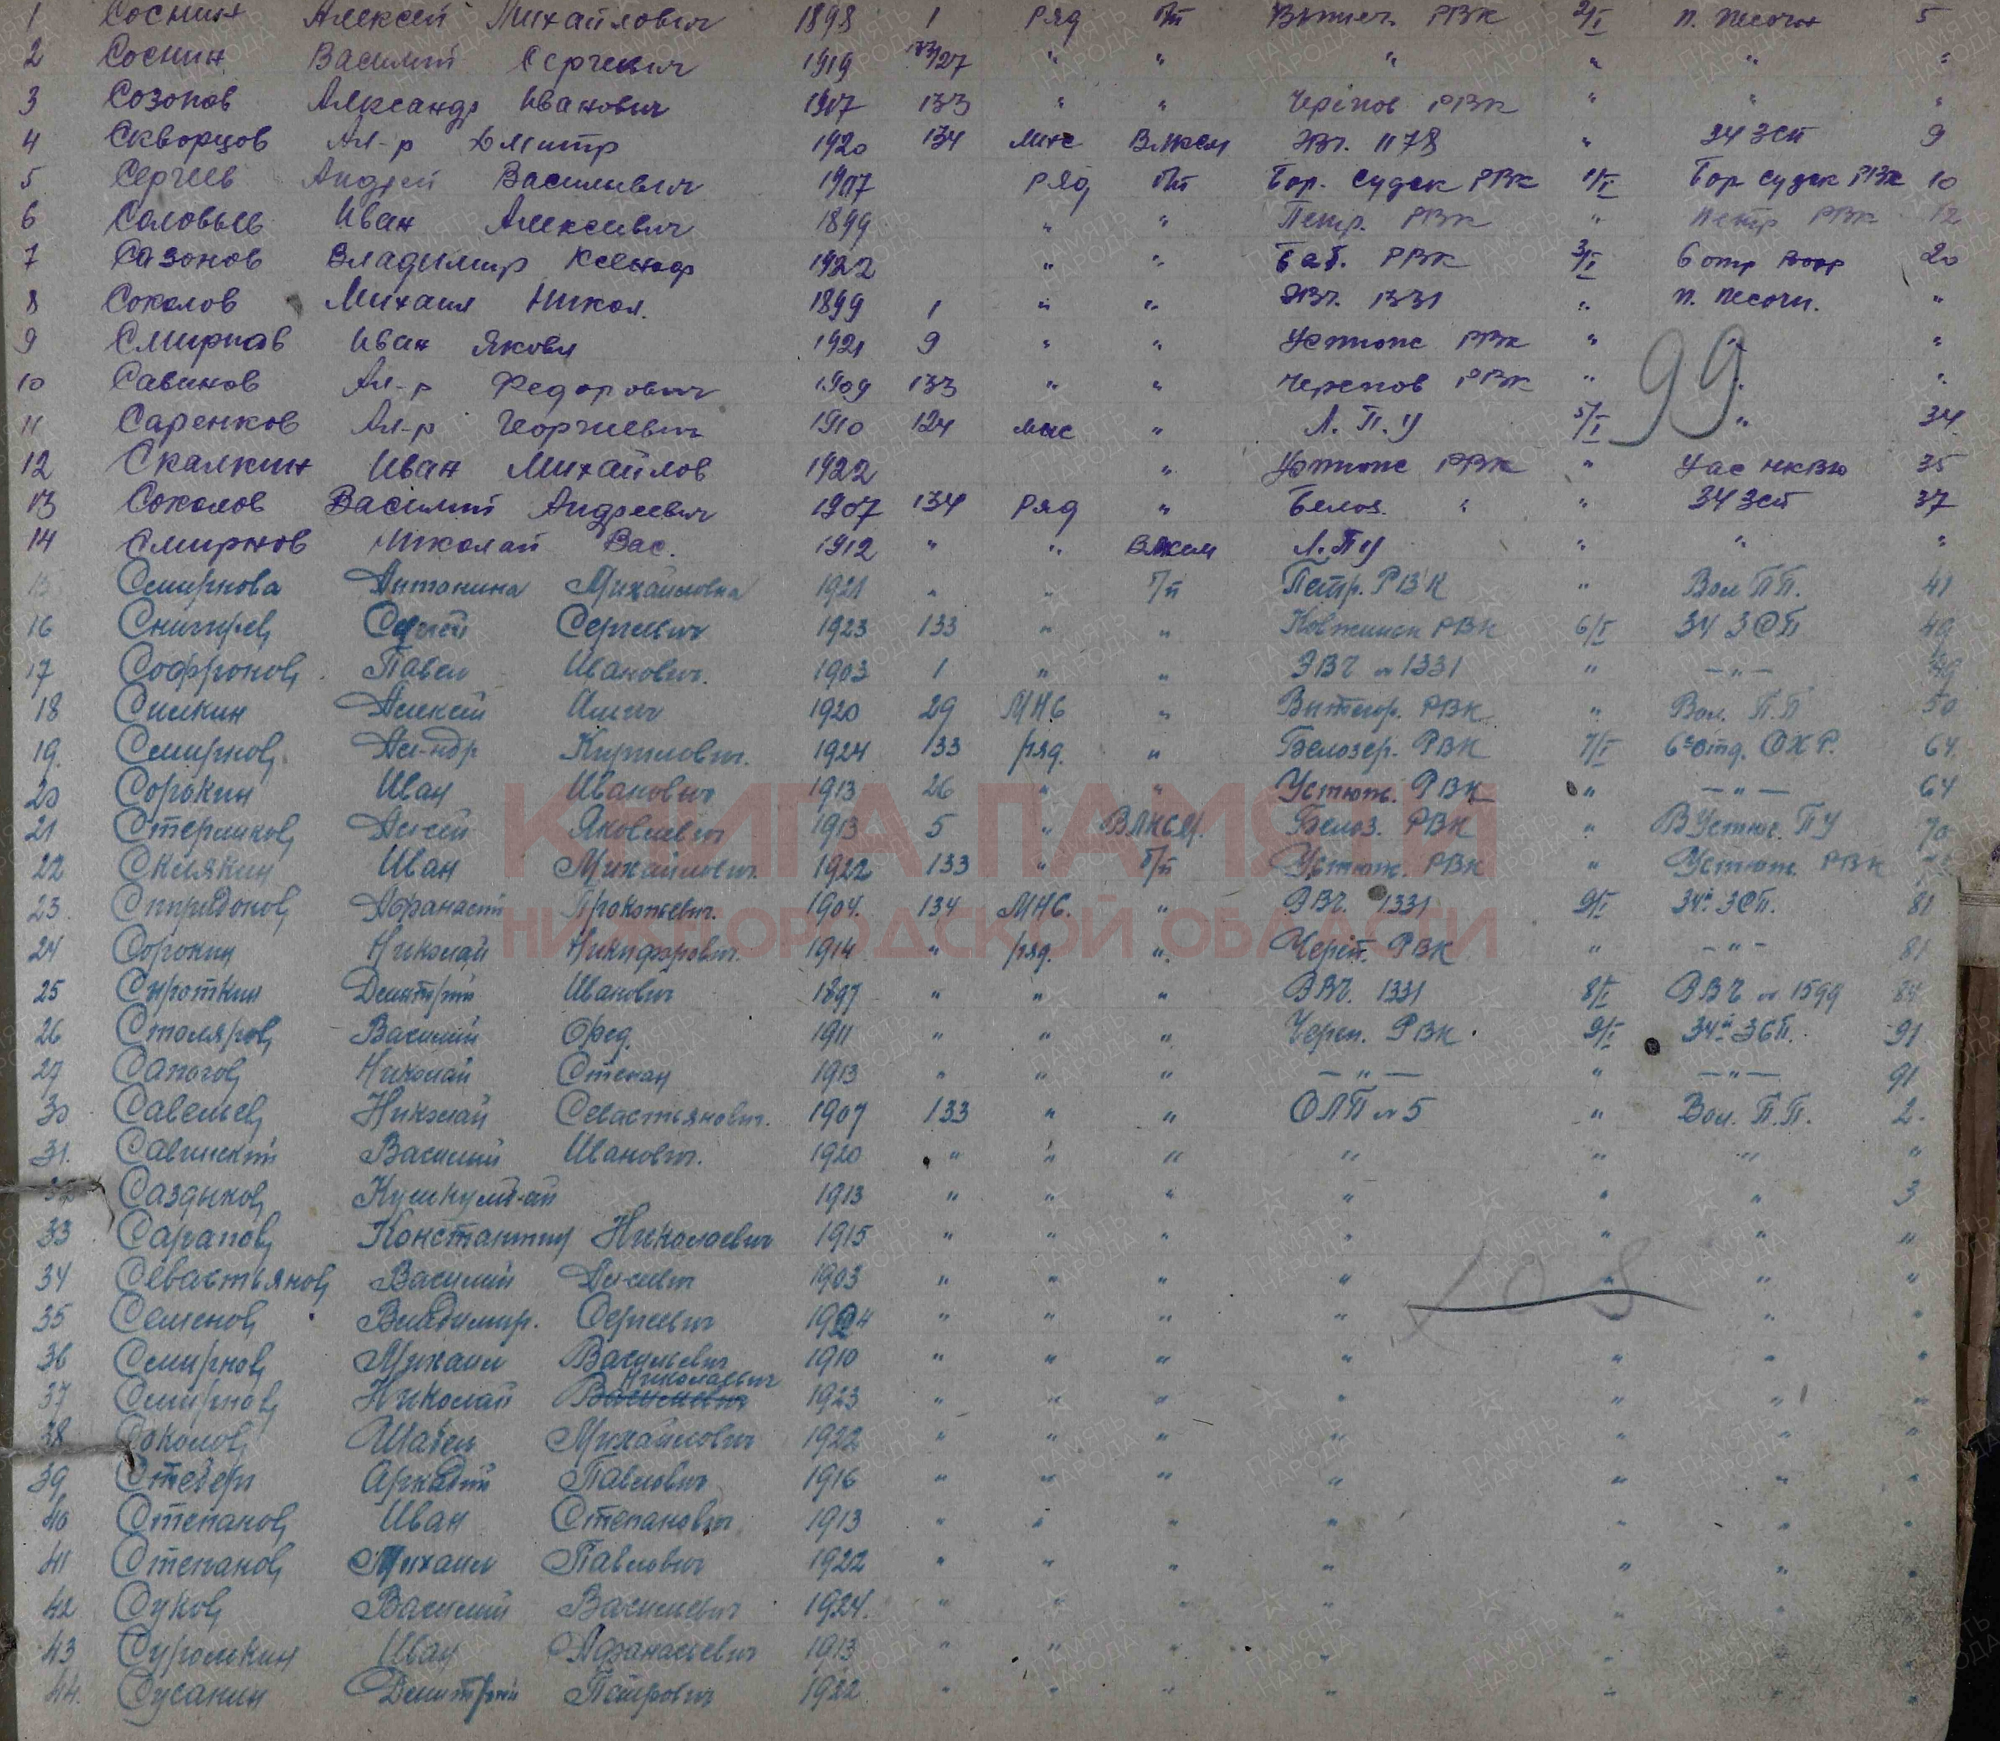 1 Соснин Алексей Михайлович 1898 1 ряд РВК 2/I п. Песочн 5
2 Соснин Василий Сергеевич 1919 " " " " " "
3 Созонов Александр Иванович 1907 133 " " Черепов РВК " " "
4 Скворцов Ал-р Дмитр 1920 134 мнс Влксм ЭВГ. 1178 " 34 ЗСП 9
5 Сергеев Андрей Васильевич 1907 ряд Бор. Судск РВК 1/I Бор Судск РВК 10
6 Соловьев Иван Алексеевич 1899 " " Петр. РВК " Петр РВК 12
7 Сазонов Владимир 1922 " " Баб. РВК 3/I 6 отр 20
8 Соколов Михаил Никол. 1899 1 " " ЭВГ. 1331 " п. Песочн. "
9 Смирнов Иван Яковл 1921 9 " " Устюже РВК " " "
10 Савинов Ал-р Федорович 1909 133 " " Черепов РВК " " "
11 Саренков Ал-р Георгиевич 1910 124 мнс " Л.П.У 5/I " 34
12 Скалкин Иван Михайлов 1922 " Устюже РВК " 35
13 Соколов Василий Андреевич 1907 134 ряд " Белоз. " " 34 ЗСП 37
14 Смирнов Николай Вас. 1912 " " Влксм Л.ПУ " " "
15 Смирнова Антонина Михайловна 1921 " " б/п Петр. РВК " Вол П.П. 41
16 Снигирев Сергей Сергеевич 1923 133 " " РВК 6/I 34 ЗСП 49
17 Софронов Павел Иванович. 1903 1 " " ЭВГ № 1331 " — " — 49
18 Симкин Алексей 1920 29 МНС " Вытегор. РВК " Вол. П.П 50
19. Смирнов Ал-ндр Кириллович. 1924 133 ряд. " Белозер. РВК 7/I 6е отд. ОХР. 64
20 Сорокин Иван Иванович 1913 26 " " Устюж. РВК " — " — 64
21 Стерликов Алексей Яковлевич 1913 5 " ВЛКСМ. Белоз. РВК " ВУстюг. ПУ 70
22 Скилякин Иван Михайлович 1922 133 " б/п Устюж. РВК " Устюж. РВК
23. Спиридонов Афанасий Прокопьевич. 1904. 134 МНС. " ЭВГ. 1331 9/I 34й ЗСП. 81
24 Сорокин Николай Никифорович. 1914 " ряд. " Череп. РВК " — " — 81
25 Сироткин Дмитрий Иванович 1897 " " " ЭВГ. 1331 8/I ЭВГ № 1599 84
26 Столяров Василий Фед. 1911 " " " Череп. РВК 9/I 34й ЗСП. 91
27 Сапогов Николай Степан 1913 " " " — " — " — " — 91
30 Савельев Николай Севастьянович. 1907 133 " " ОЛП № 5 " Вол. П.П. 2.
31. Савинский Василий Иванович. 1920 " " " " " " "
32 Саздыков 1913 " " " " " " 3
33 Сарапов Константин Николаевич 1915 " " " " " " "
34 Севастьянов Василий Ал-еевич 1903 " " " " " " "
35 Семенов Владимир. Сергеевич 1924 " " " " " "
36 Смирнов Михаил Васильевич 1910 " " " " " " "
37 Смирнов Николай Васильевич Николаевич 1923 " " " " " " "
38 Соколов Михайлович 1922 " " " " " " "
39 Аркадий Павлович 1916 " " " " " " "
40 Степанов Иван Степанович 1913 " " " " " "
41 Степанов Михаил Павлович 1922 " " " " " " "
42 Суков Василий Васильевич 1924. " " " " " " "
43 Иван Афанасьевич 1913 " " " " " " "
44. Сусанин Дмитрий Петрович 1922 " " " " " " "
99
КНИГА ПАМЯТИ
НИЖЕГОРОДСКОЙ ОБЛАСТИ
ПАМЯТЬ НАРОДА